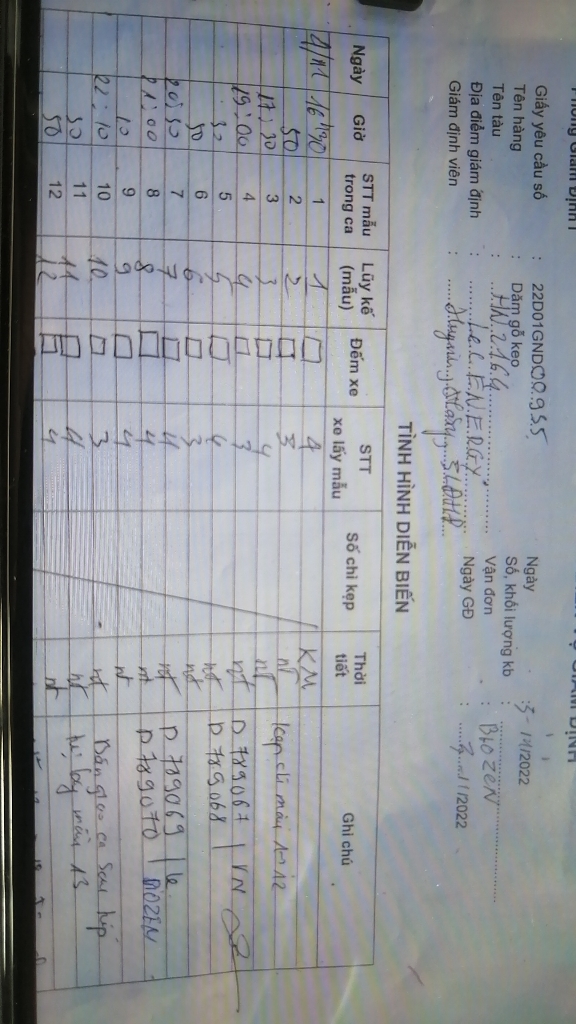 Phòng Giám Định 1
Giấy yêu cầu số : 22D01GND00955
Ngày : 3-11/2022
Tên hàng : Dăm gỗ keo
Số, khối lượng kb :
Tên tàu :
Vận đơn : BIOZEN
Địa điểm giám định : L.C.ENERGY
Ngày GĐ : 11/2022
Giám định viên :
TÌNH HÌNH DIỄN BIẾN
Ngày Giờ STT mẫu trong ca Lũy kế (mẫu) Đếm xe STT xe lấy mẫu Số chì kẹp Thời tiết Ghi chú
4/11 16:30 1 1 KM
50 2 2 nt Kẹp chì mẫu 1->12
17:30 3 3 4 nt
19:00 4 4 3 nt D789067 VN
30 5 5 4 nt D789068
50 6 6 3 nt
20:30 7 7 4 nt D789069
21:00 8 8 4 nt D789070 BIOZEN
10 9 9 4 nt
22:10 10 10 3 nt Bàn giao ca sau tiếp
30 11 11 4 nt lấy mẫu 13
50 12 12 4 nt